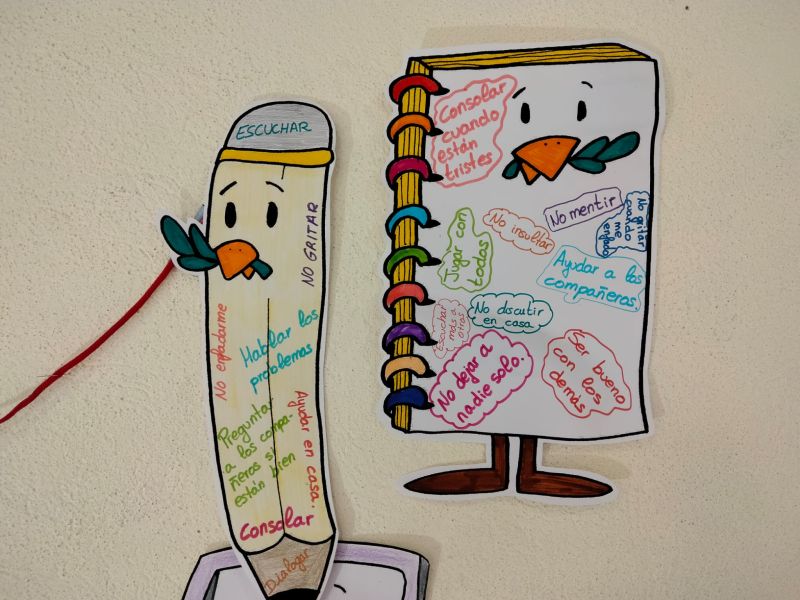 ESCUCHAR
NO GRITAR
No enfadarme
Hablar los
problemas
Preguntar
a los compa-
ñeros si
están bien
Ayudar en casa.
Consolar
Dialogar
Consolar
cuando
están
tristes
No mentir
No gritar
cuando
me
enfado
No insultar
Jugar con
todos
Ayudar a los
compañeros.
No discutir
en casa
Escuchar
más a
otros
No dejar a
nadie solo.
Ser bueno
con los
demás